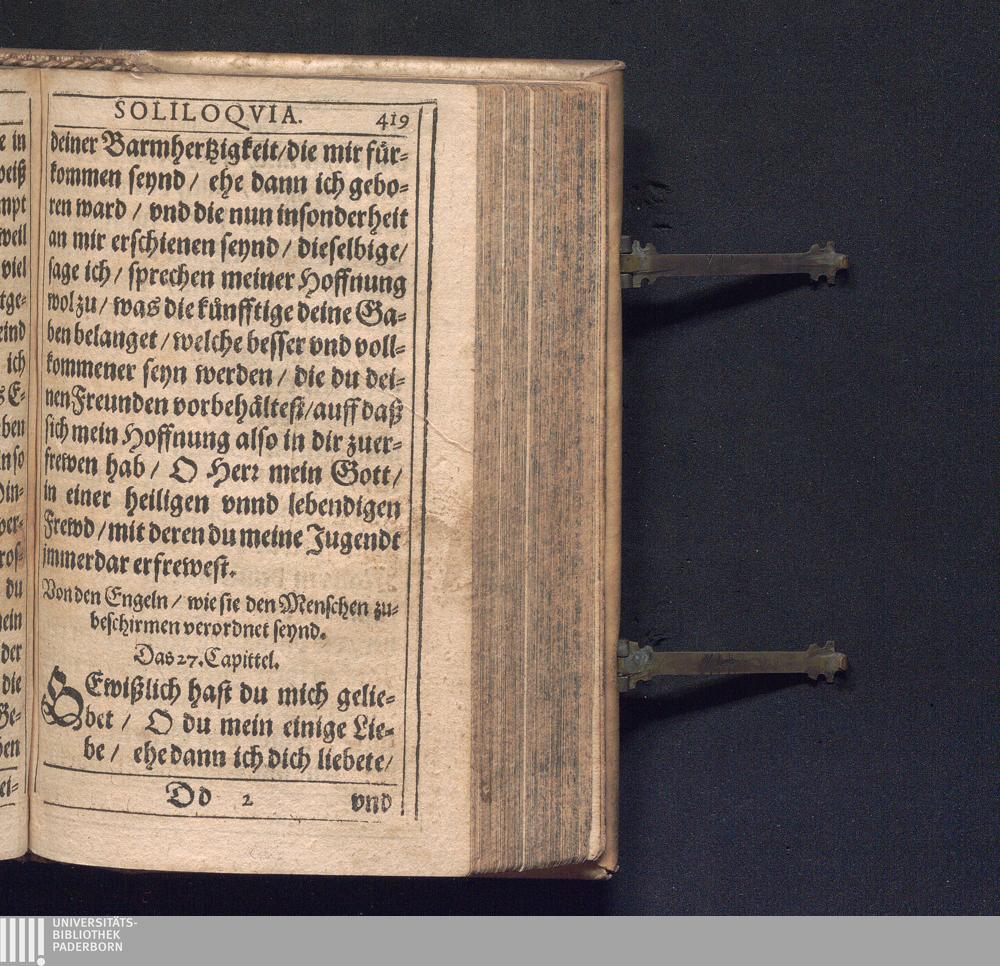 SOLILOQVIA. 419
deiner Barmhertzigkeit/ die mir für-
kommen seynd / ehe dann ich gebo-
ren ward / vnd die nun insonderheit
an mir erschienen seynd / dieselbige/
sage ich / sprechen meiner Hoffnung
wol zu / was die künfftige deine Ga-
ben belanget / welche besser vnd voll-
kommener seyn werden / die du dei-
nen Freunden vorbehältest/ auff daß
sich mein Hoffnung also in dir zuer-
frewen hab / O Herr mein Gott/
in einer heiligen vnnd lebendigen
Frewd / mit deren du meine Jugendt
jmmerdar erfrewest.
Von den Engeln / wie sie den Menschen zu-
beschirmen verordnet seynd.
Das 27. Capittel.
GEwißlich hast du mich gelie-
bet / O du mein einige Lie-
be / ehe dann ich dich liebete/
Dd 2 vnd
UNIVERSITÄTS-
BIBLIOTHEK
PADERBORN